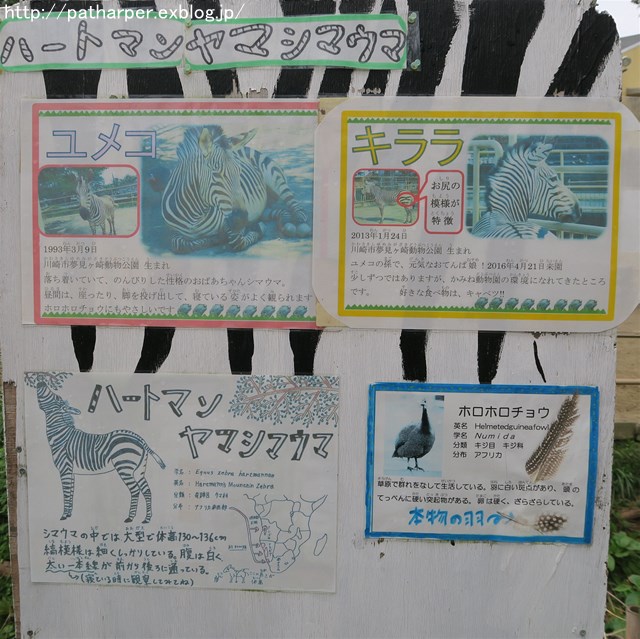 http://patharper.exblog.jp/
ハートマンヤマシマウマ
ユメコ
1993年3月9日
川崎市夢見ヶ崎動物公園 生まれ
落ち着いていて、のんびりした性格のおばあちゃんシマウマ。
昼間は、座ったり、脚を投げ出して、寝ている姿がよく観られます
ホロホロチョウにもやさしいです
キララ
お尻の
模様が
特徴
2013年1月24日
川崎市夢見ヶ崎動物公園 生まれ
ユメコの孫で、元気なおてんば娘！2016年4月21日来園
少しずつではありますが、かみね動物園の環境になれてきたところ
です。 好きな食べ物は、キャベツ!!
ハートマン
ヤマシマウマ
学名 : Equus zebra hartmannae
英名 : Hartmann's Mountain Zebra
分類 : 奇蹄目 ウマ科
シマウマの中では大型で体高130～136cm
縞模様は細くしっかりしている。腹は白く
太い一本線が前から後ろに通っている。
(寝ている時に観見してみてね)
ホロホロチョウ
英名 Helmetedguineafowl
学名 Numida
分類 キジ目 キジ科
分布 アフリカ
草原で群れをなして生活している。羽に白い斑点があり、頭の
てっぺんに硬い突起物がある。卵は硬く、ざらざらしている。
本物の羽